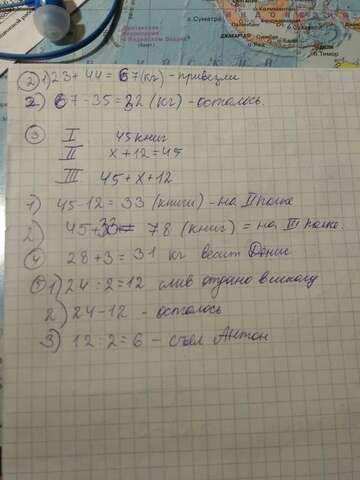 о. Суматра
ДЖАКАРТА
о. Тимор
② 1) 23 + 44 = 67 (кг) - привезли
2) 67 - 35 = 32 (кг) - осталось
③ I 45 книг
II x + 12 = 45
III 45 + x + 12
1) 45 - 12 = 33 (книги) - на II полке
2) 45 + 33 = 78 (книг) = на III полке.
④ 28 + 3 = 31 кг весит Денис
⑤ 1) 24 : 2 = 12 слив отдано в школу
2) 24 - 12 - осталось
3) 12 : 2 = 6 - съел Антон